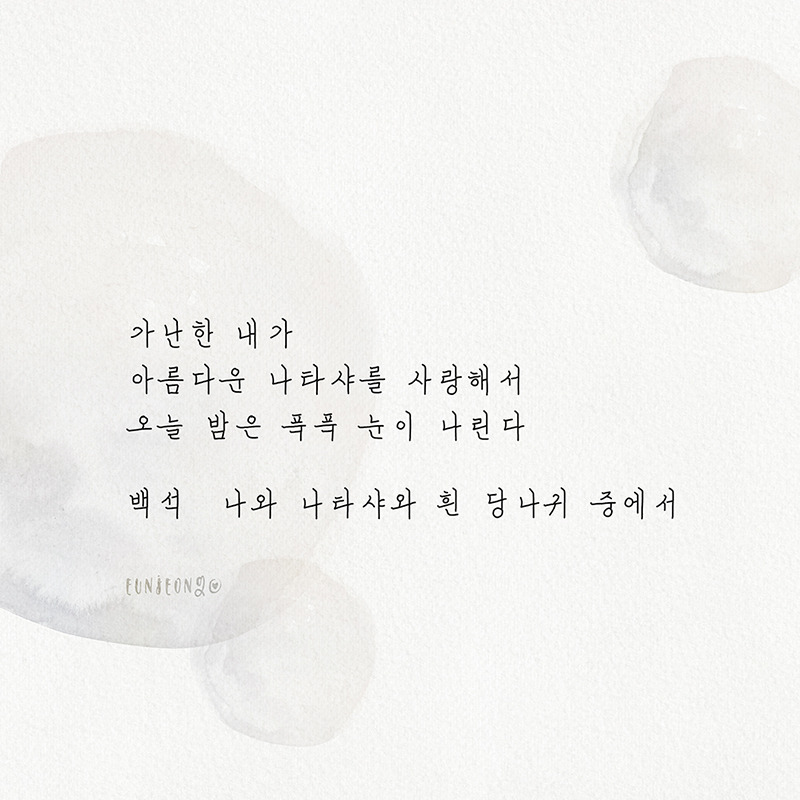 가난한 내가
아름다운 나타샤를 사랑해서
오늘 밤은 푹푹 눈이 나린다
백석 나와 나타샤와 흰 당나귀 중에서
EUNJEONG